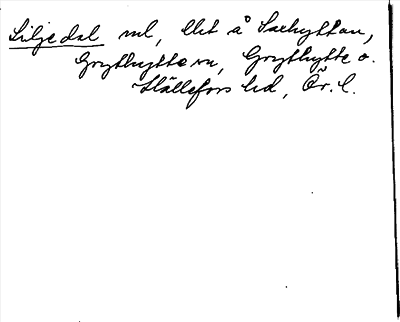 Siljedal ml, Ult å Saxhyttan,
Grythyttevn, Grythytte o.
Hällefors hd, Ör. l.